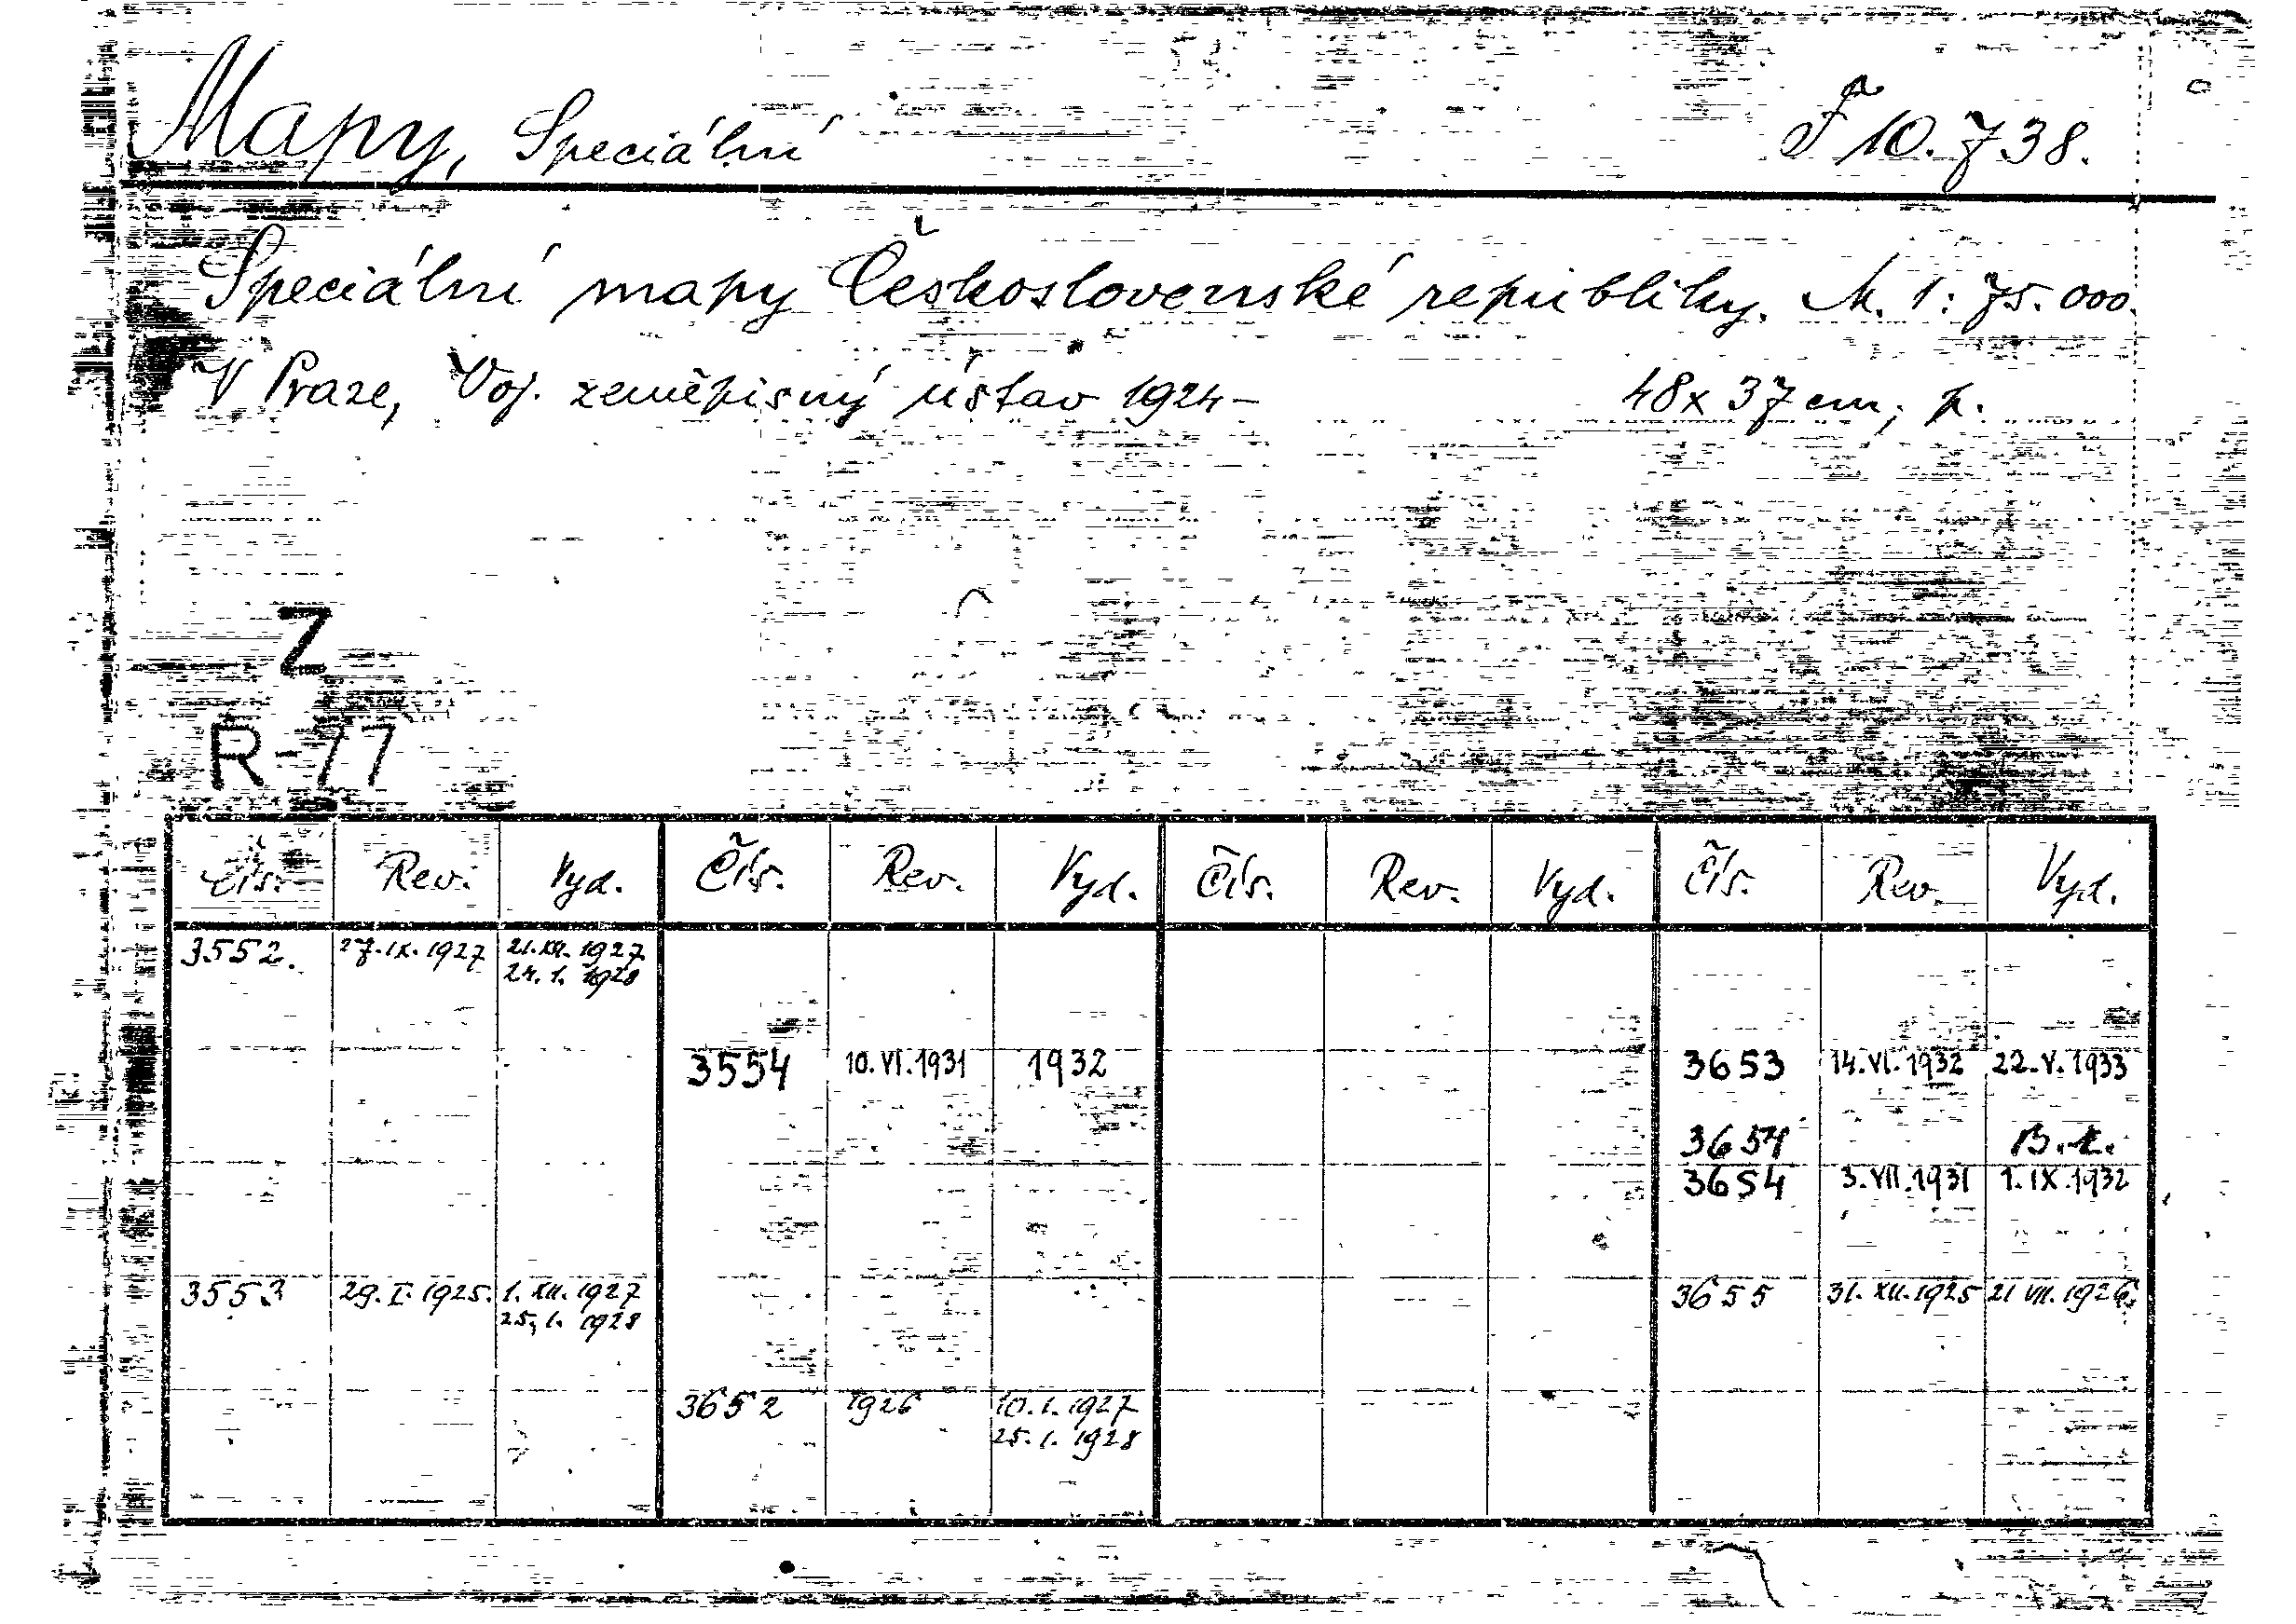 Mapy, Speciální F 10.738.
Speciální mapy Československé republiky. M. 1:75.000.
V Praze, Voj. zeměpisný ústav 1924- 48x37 cm; p.
Z
R-77
Čís. Rev. Vyd. Čís. Rev. Vyd. Čís. Rev. Vyd. Čís. Rev. Vyd.
3552. 27.IX.1927 21.XII.1927
24.1.1928
3554 10.VI.1931 1932 3653 14.VI.1932 22.V.1933
3654
3654 3.VII.1931 1.IX.1932
3553 29.I.1925. 1.XII.1927 3655 31.XII.1925 21 VII.1926.
25.1.1928
3652 1926 10.1.1927
25.1.1928